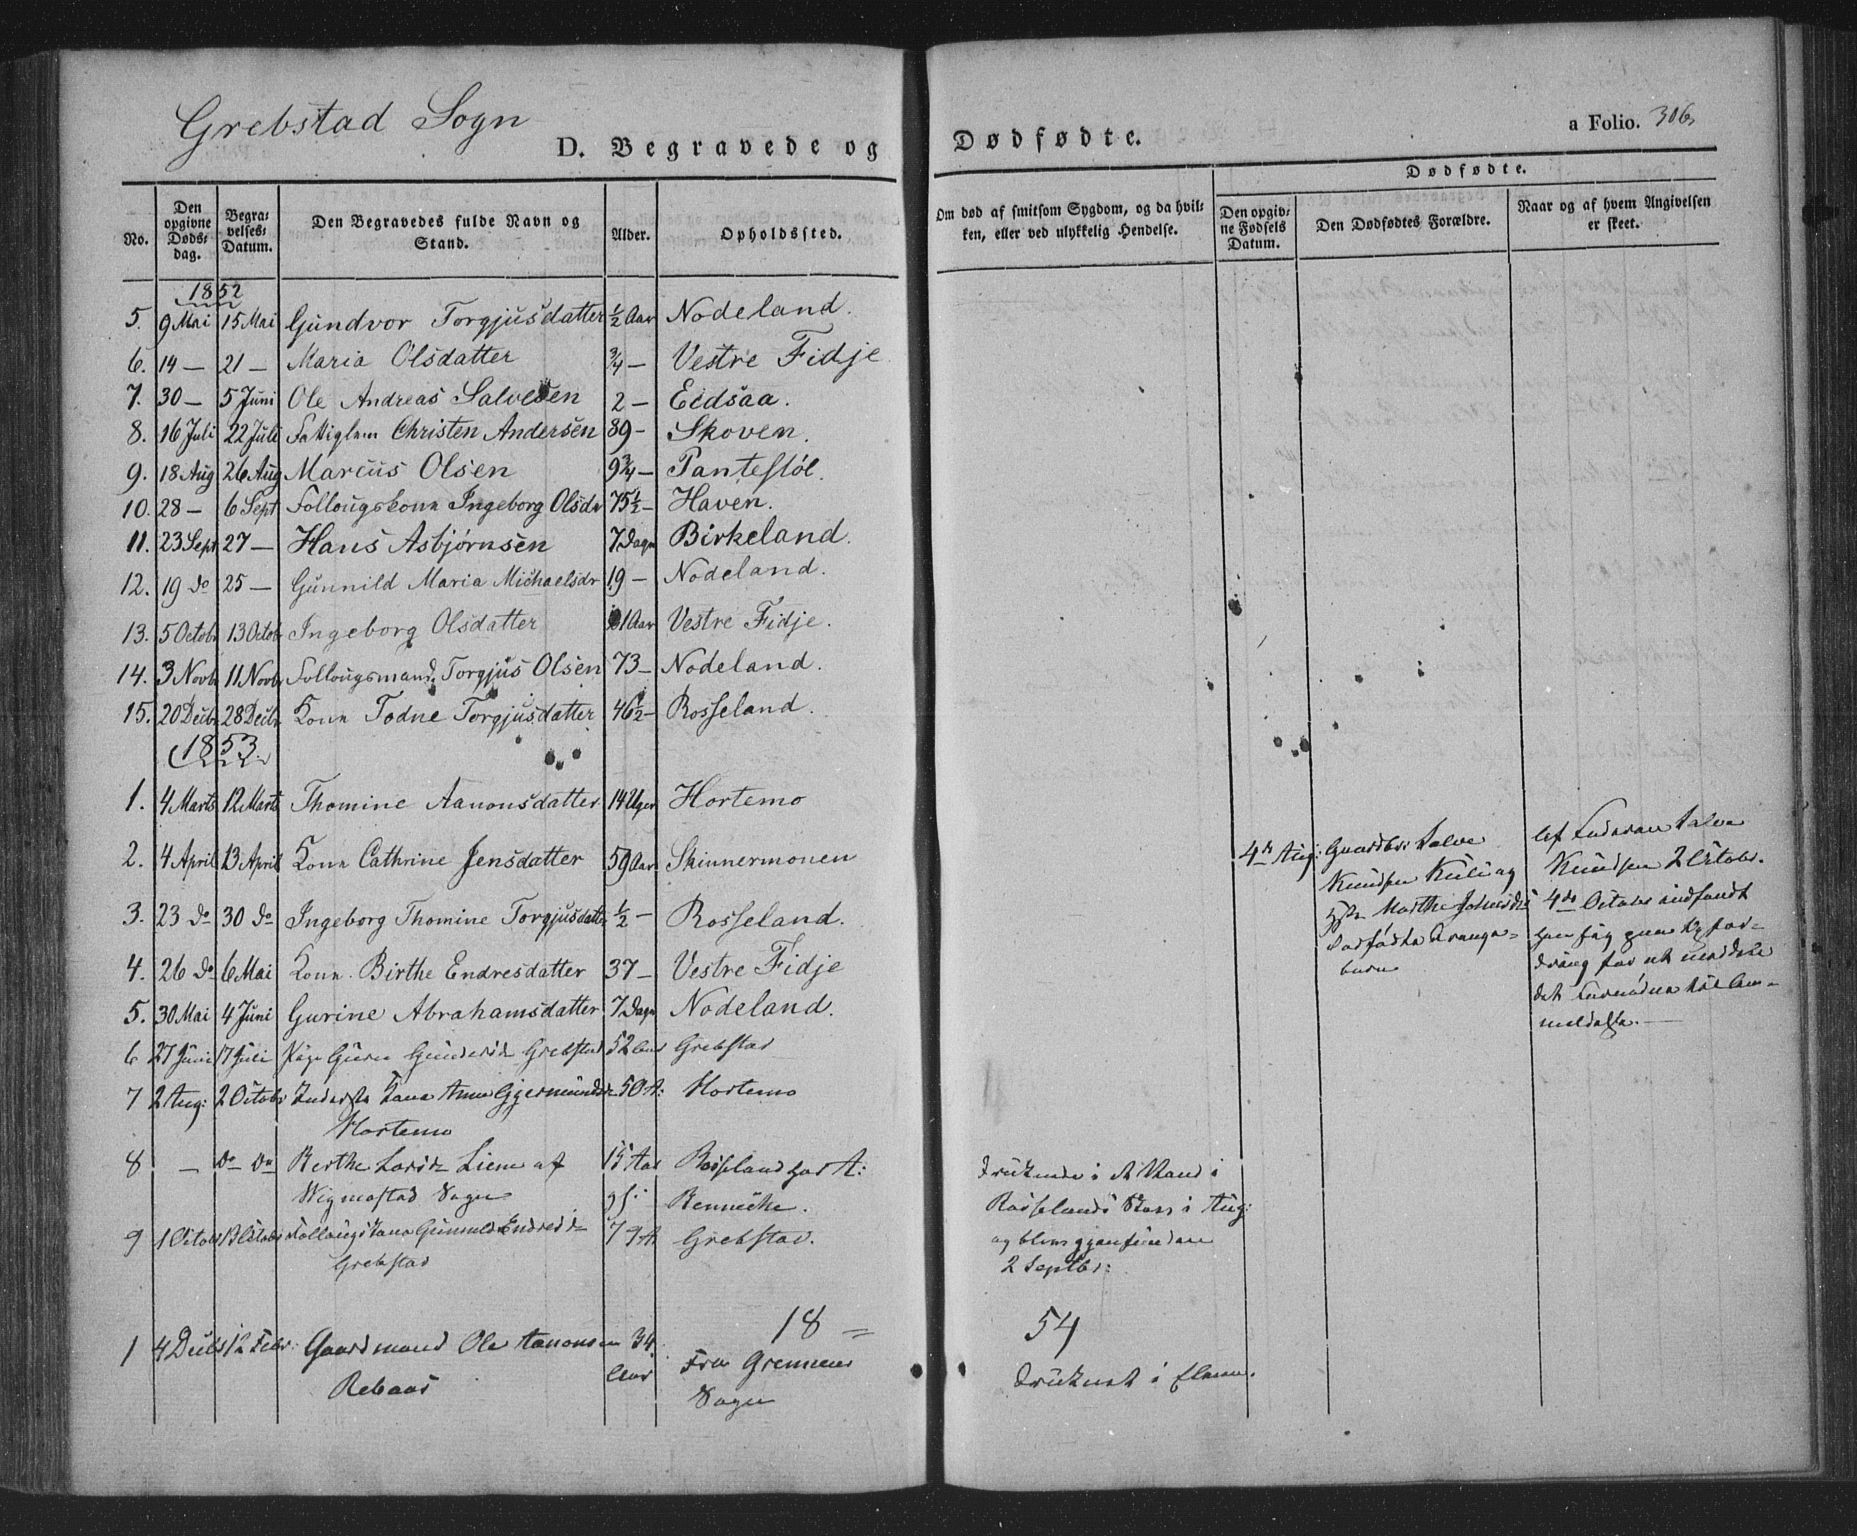 Grebstad Sogn
D. Begravede og Dødfødte.
a Folio. 306
No.
Den opgivne Døds-dag.
Begra-velses-Datum.
Den Begravedes fulde Navn og Stand.
Alder.
Opholdssted.
Om død af smitsom Sygdom, og da hvil-ken, eller ved ulykkelig Hendelse.
Dødfødte.
Den opgiv-ne Fødsels Datum.
Den Dødfødtes Forældre.
Naar og af hvem Angivelsen er skeet.
1852
5. 9 Mai 15 Mai Gundvor Torgjusdatter ½ Aar Nodeland.
6. 14 — 21 — Maria Olsdatter ¾ — Vestre Fidje
7. 30 — 5 Juni Ole Andreas Salvesen 2 — Eedsaa.
8. 16 Juli 22 Juli Fattiglem Christen Andersen 89 — Skoven.
9. 18 Aug 26 Aug Marcus Olsen 9¾ — Pantestøl.
10. 28 — 6 Sept Follougskone Ingeborg Olsdr 75½ — Haven.
11. 23 Sept 27 — Hans Asbjørnsen 7 Dage Birkeland.
12. 19 do 25 — Gunnild Maria Michaelsdr 19 — Nodeland.
13. 5 Octobr 13 Octobr Ingeborg Olsdatter 1 Aar Vestre Fidje.
14. 3 Novbr 11 Novbr Follougsmand Torgjus Olsen 73 — Nodeland.
15. 20 Decbr 28 Decbr Kone Todne Torgjusdatter 46½ — Rosseland.
1853
1. 4 Marts 12 Marts Thomine Aanonsdatter 14 Uger Hortemo
2. 4 April 13 April Kone Cathrine Jensdatter 59 Aar Skinnermonen
3. 23 do 30 do Ingeborg Thomine Torgjusdatter ½ — Rosseland.
4. 26 do 6 Mai Kone Birthe Endresdatter 37 — Vestre Fidje
5. 30 Mai 4 Juni Gurine Abrahamsdatter 7 Dage Nodeland.
6 27 Juni 17 Juli Pige Guren Gundersdr Grebstad 52 Aar Grebstad
7 2 Aug: 2 Octobr Kone Anne Gjermundsdr 50 A: Hortemo
Hortemo
8 — do do Berthe Larsdr Liene af 15 Aar Rosseland hos A:
Wigmostad Sogn gl: Benneche.
druknede i et Vand i
Rosselands i Aug:
og blev gjenfunden
2 Septbr:
9 1 Octobr 13 Octobr Follougskone Gunnild Endresdr 79 A Grebstad.
Grebstad
4de Aug: Gaardbr: Salve
Knudsen Kuli og
Hustru Marthe Johnsdr
dødfødte Drenge-
barn
Af Faderen Salve
Knudsen 2 Octobr.
4de Octobr indfandt
han sig paa Opfor-
dring for at meddele
det til An-
meldelse.
18 = 54
1 4 Decbr 12 Febr: Gaardmand Ole Aanonsen 34 Fra Grenneness
Rebaas Aar Sogn
druknet i Elven.